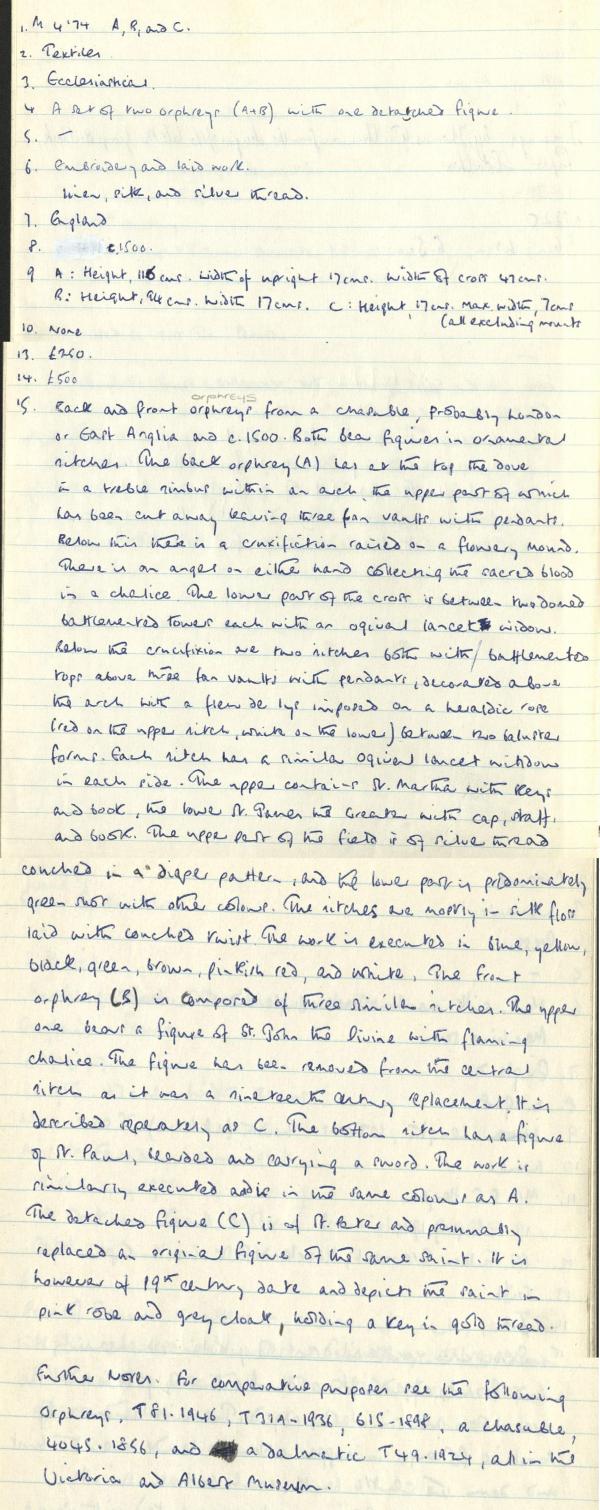 1. M 4'74 A, B, and C.
2. Textiles
3. Ecclesiastical.
4 A set of two orphreys (A+B) with one detatched figure.
5. -
6. Embroidery and laid work.
linen, silk, and silver thread.
7. England
8. c.1500.
9 A: Height, 116 cms. Width of upright 17cms. Width of cross 47cms.
B: Height, 94cms. Width 17cms. C: Height, 17cms. Max. width, 7cms
(all excluding mounts
10. None
13. £250.
14. £500
orphreys
15. Back and front orphreys from a chasuble, probably London
or East Anglia and c.1500. Both bear figures in ornamental
nitches. The back orphrey (A) has at the top the dove
in a treble nimbus within an arch, the upper part of which
has been cut away leaving three fan vaults with pendants.
Below this there is a crucifiction raised on a flowery mound.
There is an angel on either hand collecting the sacred blood
in a chalice. The lower part of the cross is between two domed
battlemented towers each with an ogival lancet widow.
Below the crucifixion are two nitches both with battlemented
tops above three fan vaults with pendants, decorated above
the arch with a fleur de lys imposed on a heraldic rose
(red on the upper nitch, white on the lower) between two baluster
forms. Each nitch has a similar ogival lancet window
in each side. The upper contains St. Martha with keys
and book, the lower St. James the Greater with cap, staff,
and book. The upper part of the field is of silver thread
couched in a diaper pattern, and the lower part is predominately
green shot with other colours. The nitches are mostly in silk floss
laid with couched twist. The work is executed in blue, yellow,
black, green, brown, pinkish red, and white. The front
orphrey (B) is composed of three similar nitches. The upper
one bears a figure of St. John the Divine with flaming
chalice. The figure has been removed from the central
nitch as it was a nineteenth century replacement. It is
described seperately as C. The bottom nitch has a figure
of St. Paul, bearded and carrying a sword. The work is
similarly executed and is in the same colours as A.
The detached figure (C) is of St. Peter and presumably
replaced an original figure of the same saint. It is
however of 19th century date and depicts the saint in
pink robe and grey cloak, holding a key in gold thread.
Further Notes. For comparative purposes see the following
orphreys, T81-1946, T31A-1936, 615-1898, a chasuble,
4045-1856, and a dalmatic T49-1924, all in the
Victoria and Albert Museum.